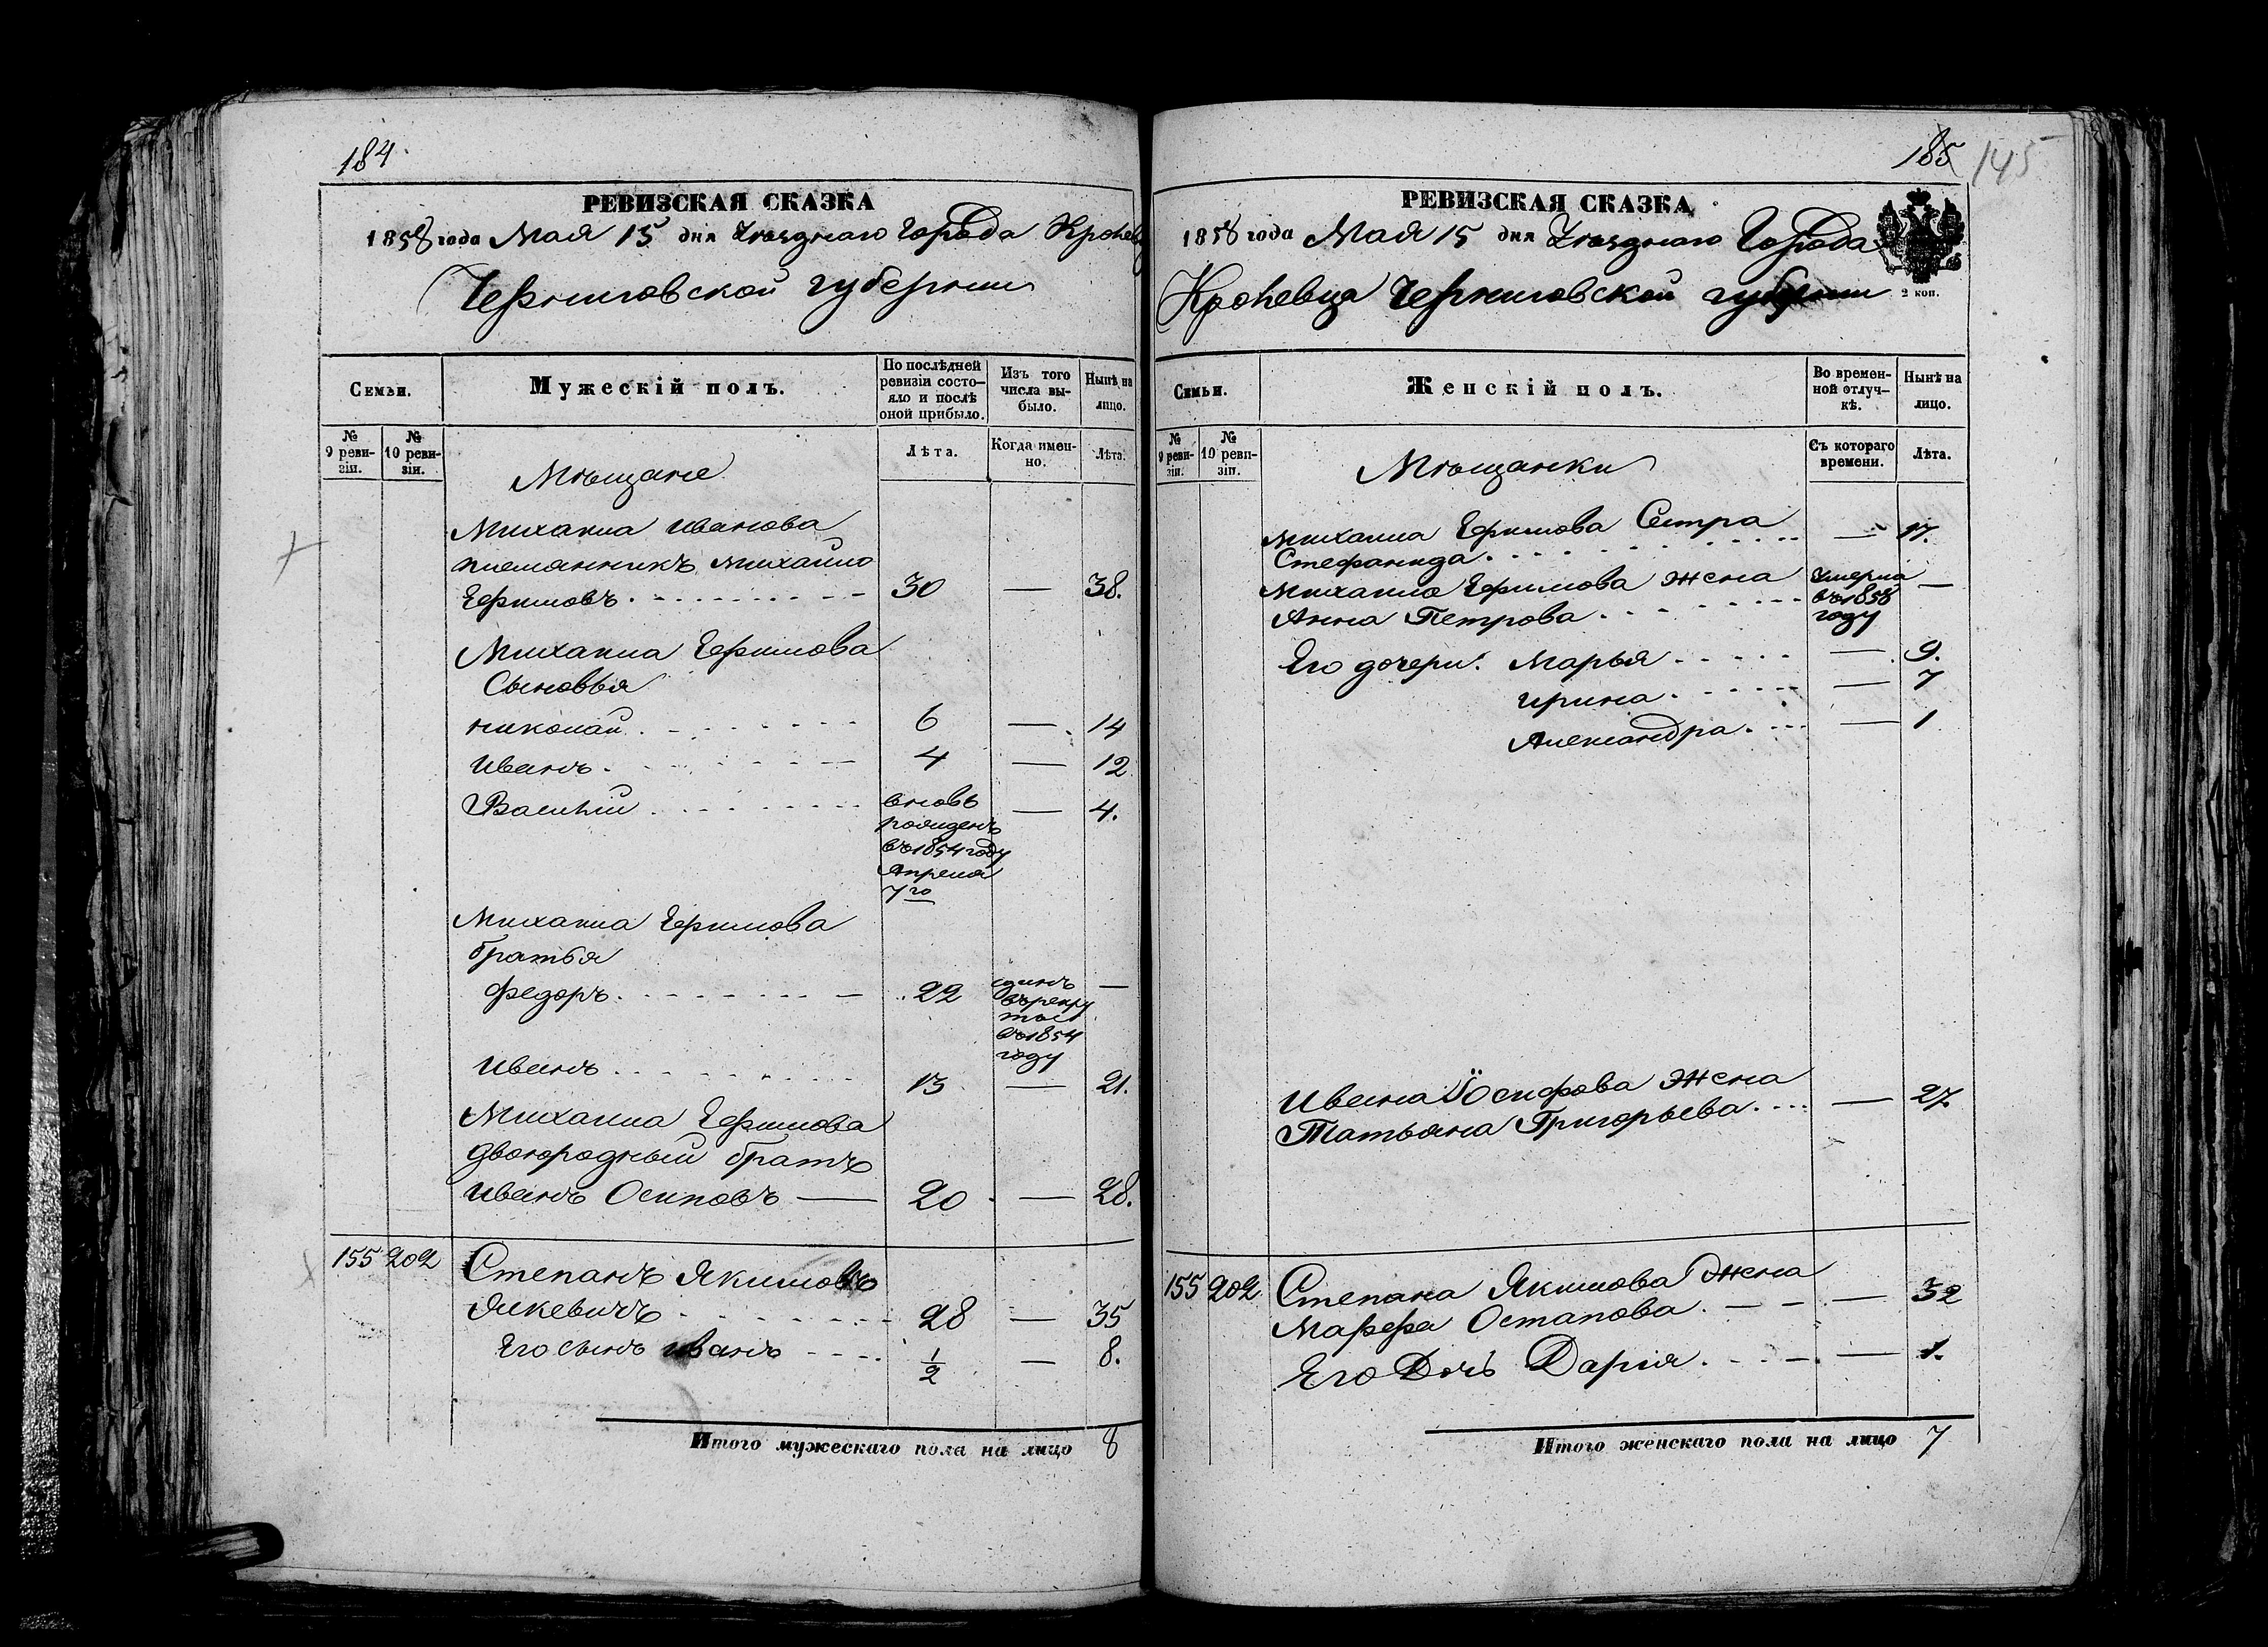 184
РЕВИЗСКАЯ СКАЗКА
1858 года Мая 15 дня Уѣзднаго Города Кролев
Черниговской губерніи
Семьи.
Мужескій полъ.
По послѣдней ревизіи состояло и послѣ оной прибыло.
Изъ того числа выбыло.
Нынѣ на лицо.
№ 9 ревизіи.
№ 10 ревизіи.
Лѣта.
Когда именно.
Лѣта.
Мѣщане
Михаила Иванова
племянникъ Михайло
Ефимовъ. 30 — 38.
Михаила Ефимова
Сыновья
Николай. 6 — 14
Иванъ. 4 — 12
Василій вновь — 4.
рожденъ
въ 1854 году
Апреля
7го
Михаила Ефимова
братья
Федоръ. 22 сданъ —
въ рекру
ты
въ 1854
году
Иванъ 13 — 21.
Михаила Ефимова
двоюродный братъ
Иванъ Осиповъ — 20 — 28.
155 202 Степанъ Якимовъ
Янкевичъ 28 — 35
Его сынъ Иванъ 1/2 — 8.
Итого мужескаго пола на лицо 8
185 145
РЕВИЗСКАЯ СКАЗКА
1858 года Мая 15 дня Уѣзднаго Города
Кролевца Черниговской губерніи
2 коп.
Семьи.
Женскій полъ.
Во временной отлучкѣ.
Нынѣ на лицо.
№ 9 ревизіи.
№ 10 ревизіи.
Съ котораго времени.
Лѣта.
Мѣщанки
Михаила Ефимова Сестра
Стефанида. — 17.
Михайла Ефимова жена Умерла —
Анна Петрова. въ 1858
году
Его дочери: Марья — 9.
Ирина — 7
Александра. — 1
Ивана Іосифова жена
Татьяна Григорьева. — 27
155 202 Степана Якимова жена
Марфа Остапова. — 32
Его Дочь Дарія. — 1.
Итого женскаго пола на лицо 7